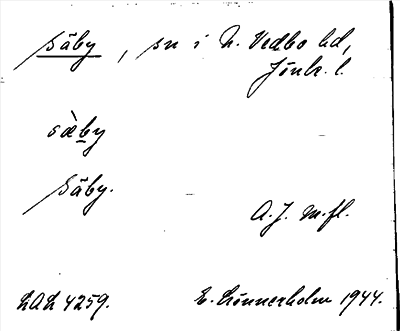 Säby, sn i N. Vedbo hd,
Jönk. l.
sæ̀by
Säby.
A. J. m. fl.
LAL 4259.
E. Lönnerholm 1944.